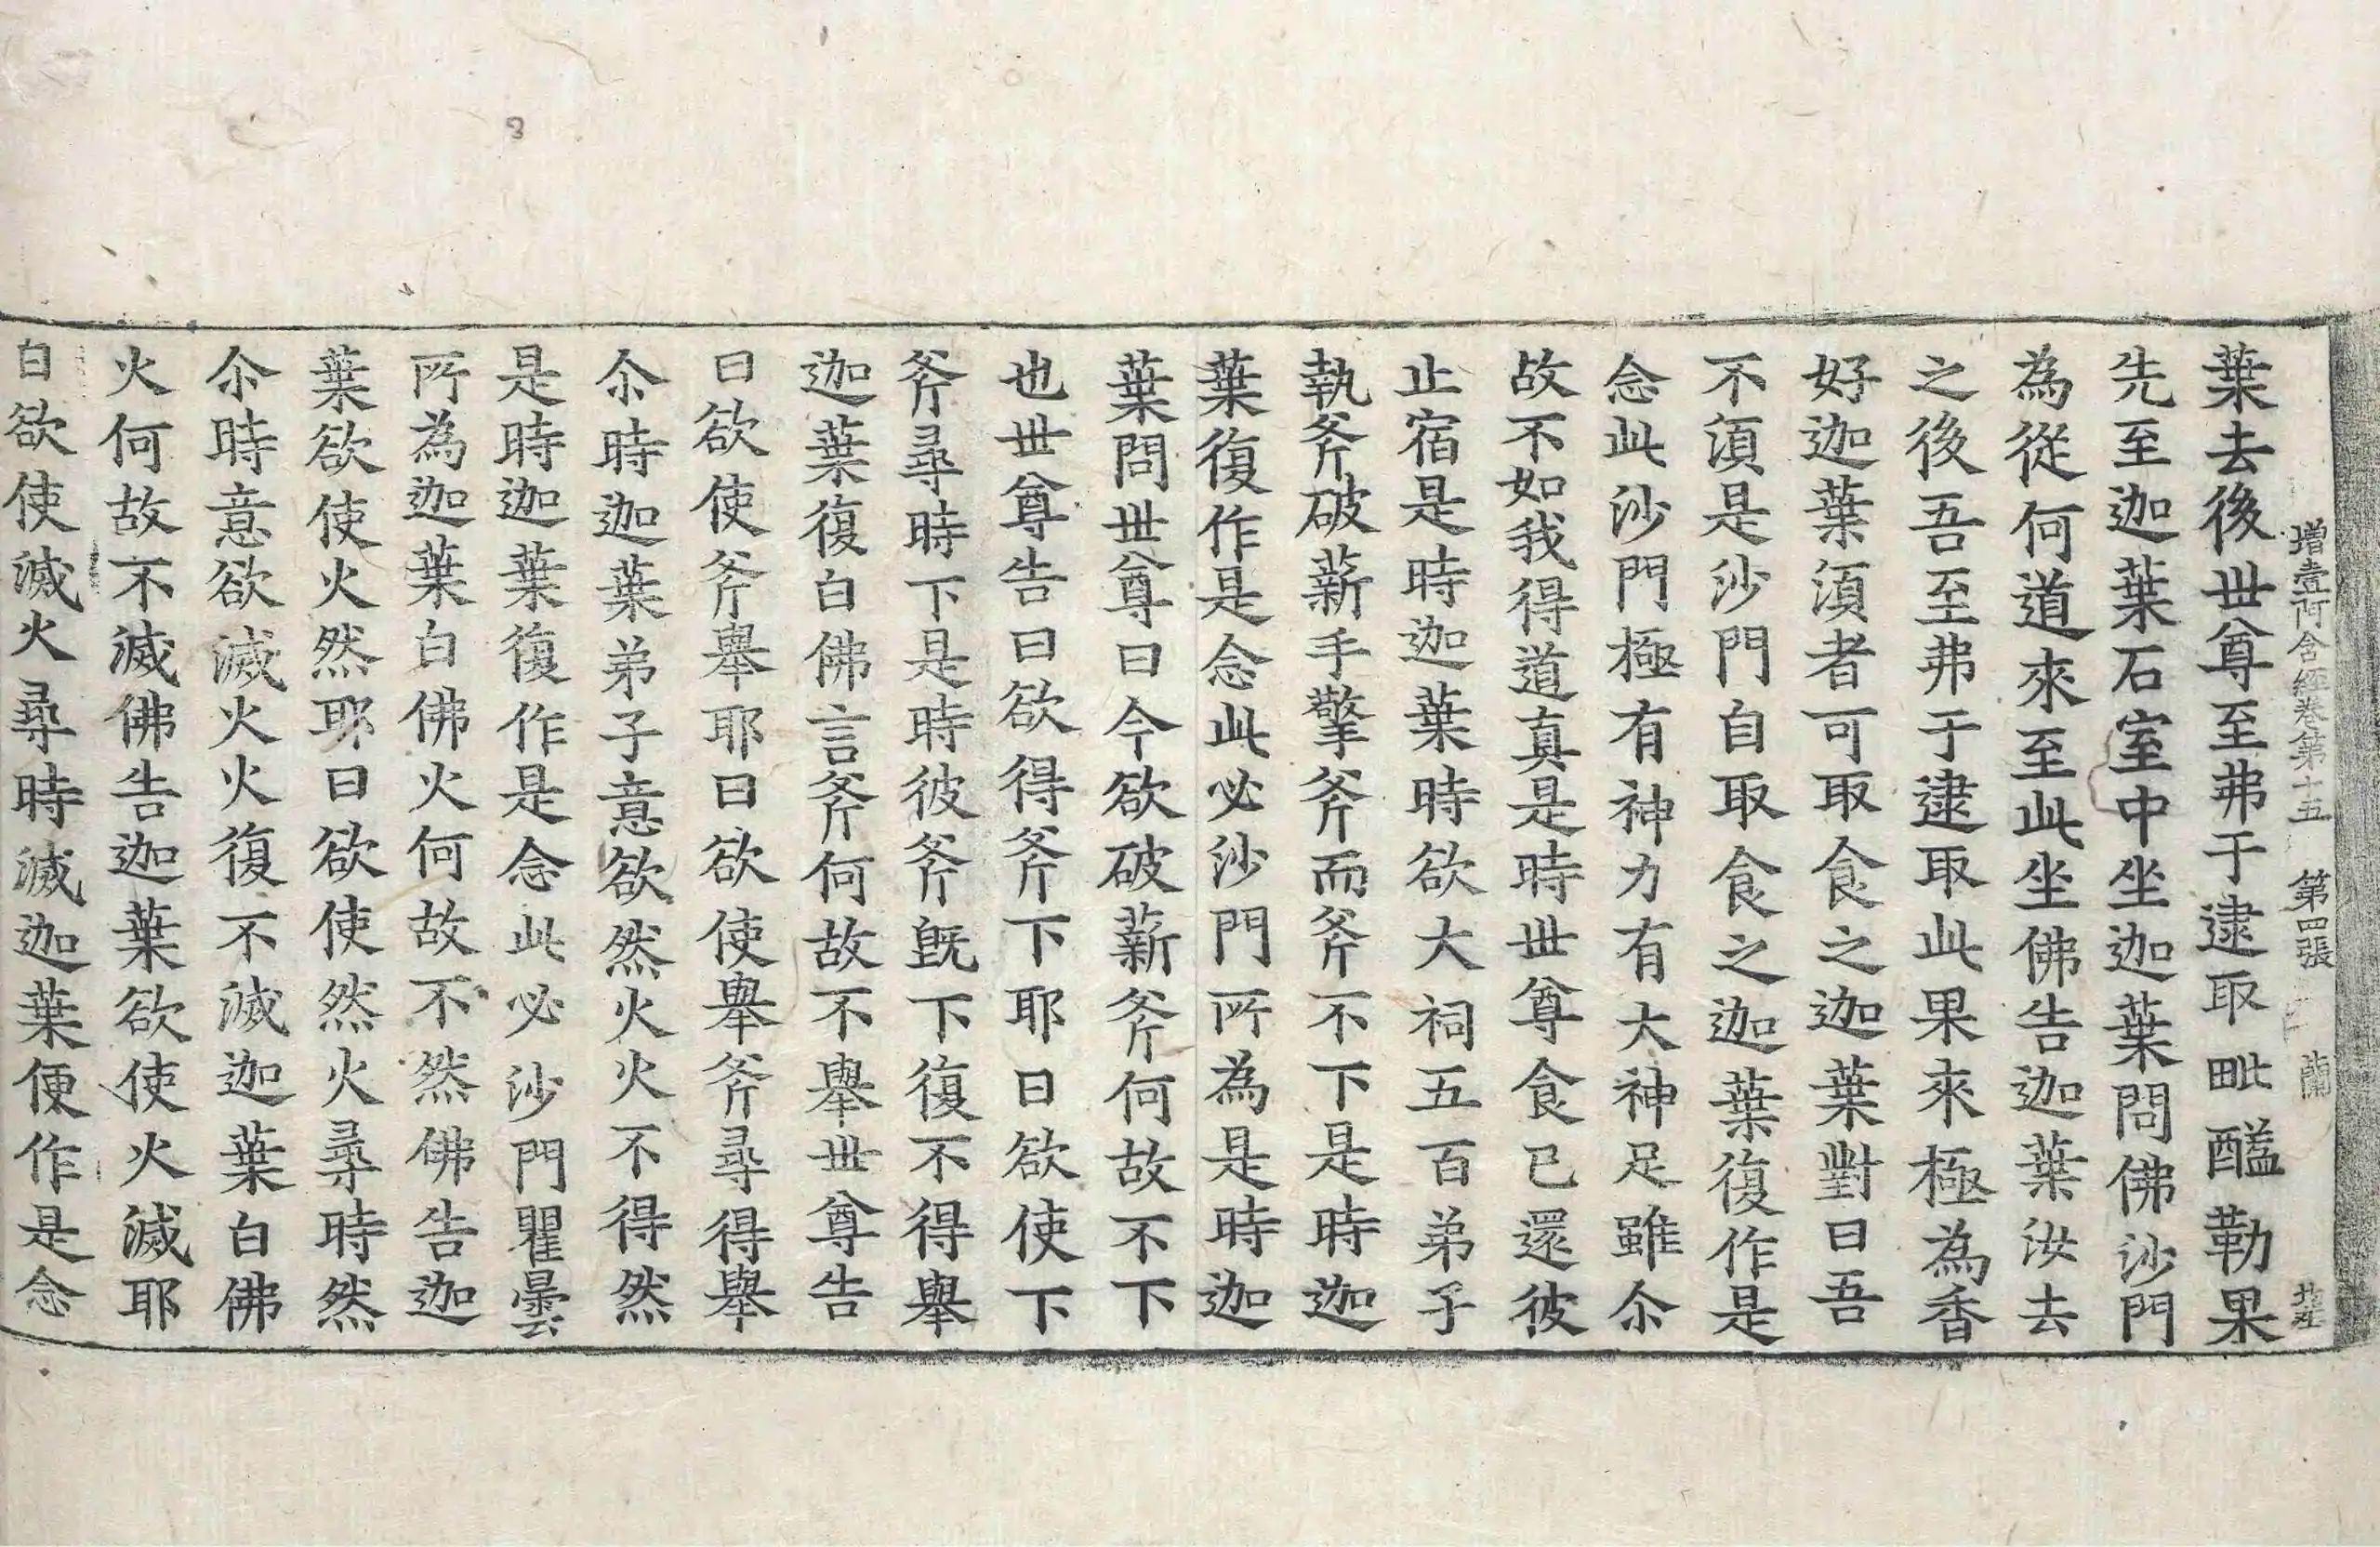 增壹阿含經卷第十五 第四張 蘭
葉去後世尊至弗于逮取毗醯勒果
先至迦葉石室中坐迦葉問佛沙門
為從何道來至此坐佛告迦葉汝去
之後吾至弗于逮取此果來極為香
好迦葉湏者可取食之迦葉對曰吾
不湏是沙門自取食之迦葉復作是
念此沙門極有神力有大神足雖尒
故不如我得道真是時世尊食已還彼
止宿是時迦葉時欲大祠五百弟子
執斧破薪手擎斧而斧不下是時迦
葉復作是念此必沙門所為是時迦
葉問世尊曰今欲破薪斧何故不下
也世尊告曰欲得斧下耶曰欲使下
斧尋時下是時彼斧旣下復不得舉
迦葉復白佛言斧何故不舉世尊告
曰欲使斧舉耶曰欲使舉斧尋得舉
尒時迦葉弟子意欲然火火不得然
是時迦葉復作是念此必沙門瞿曇
所為迦葉白佛火何故不然佛告迦
葉欲使火然耶曰欲使然火尋時然
尒時意欲滅火火復不滅迦葉白佛
火何故不滅佛告迦葉欲使火滅耶
白欲使滅火尋時滅迦葉便作是念